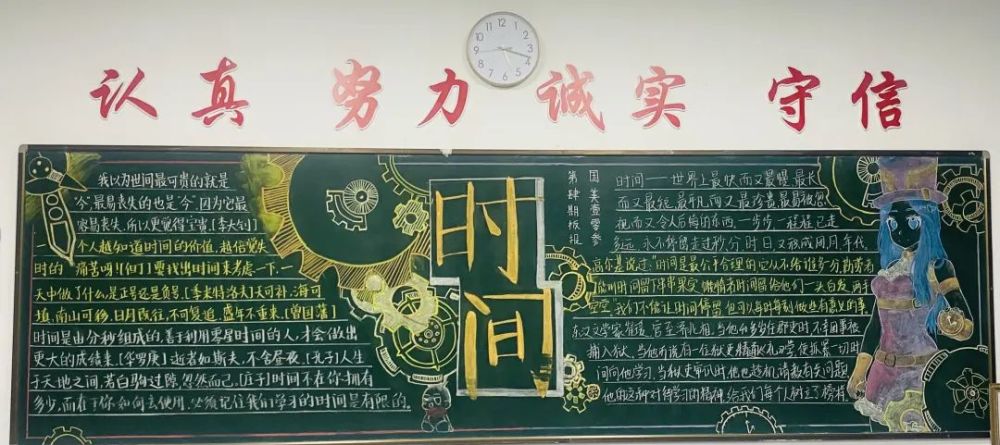 12
1
2
3
4
5
6
7
8
9
10
11
认真 努力 诚实 守信
我以为世间最可贵的就是
“今”,最易丧失的也是“今”,因为它最
容易丧失,所以更觉得宝贵[李大钊]
一个人越知道时间的价值,越倍觉失
时的 痛苦呀![但丁]要找出时间来考虑一下,一
天中做了什么,是正号还是负号。[季米特洛夫]天可补,海可
填,南山可移,日月既往,不可复追。[曾国藩]
时间是由分秒组成的,善于利用零星时间的人,才会做出
更大的成绩来。[华罗庚]逝者如斯夫,不舍昼夜。[孔子]人生
于天地之间,若白驹过隙,忽然而已。[庄子]时间不在你拥有
多少,而在于你如何去使用,必须记住我们学习的时间是有限的。
时间
国美壹零叁
第肆期板报
时间——世界上最快而又最慢,最长
而又最短,最平凡而又最珍贵,最易被忽
视而又令人后悔的东西,一步一步,一程程,已走
永不停留,走过秒、分、时、日,又形成周、月、年代。
高尔基说过:“时间是最公平合理的,它从不给谁多分,勤劳者
能叫时间留下串串果实,懒惰者时间留给他们一头白发,两手
空空。”我们不能让时间停留,但可以每时每刻做些有意义的事
他的这种对待学习的精神,给我们每个人树立了榜样